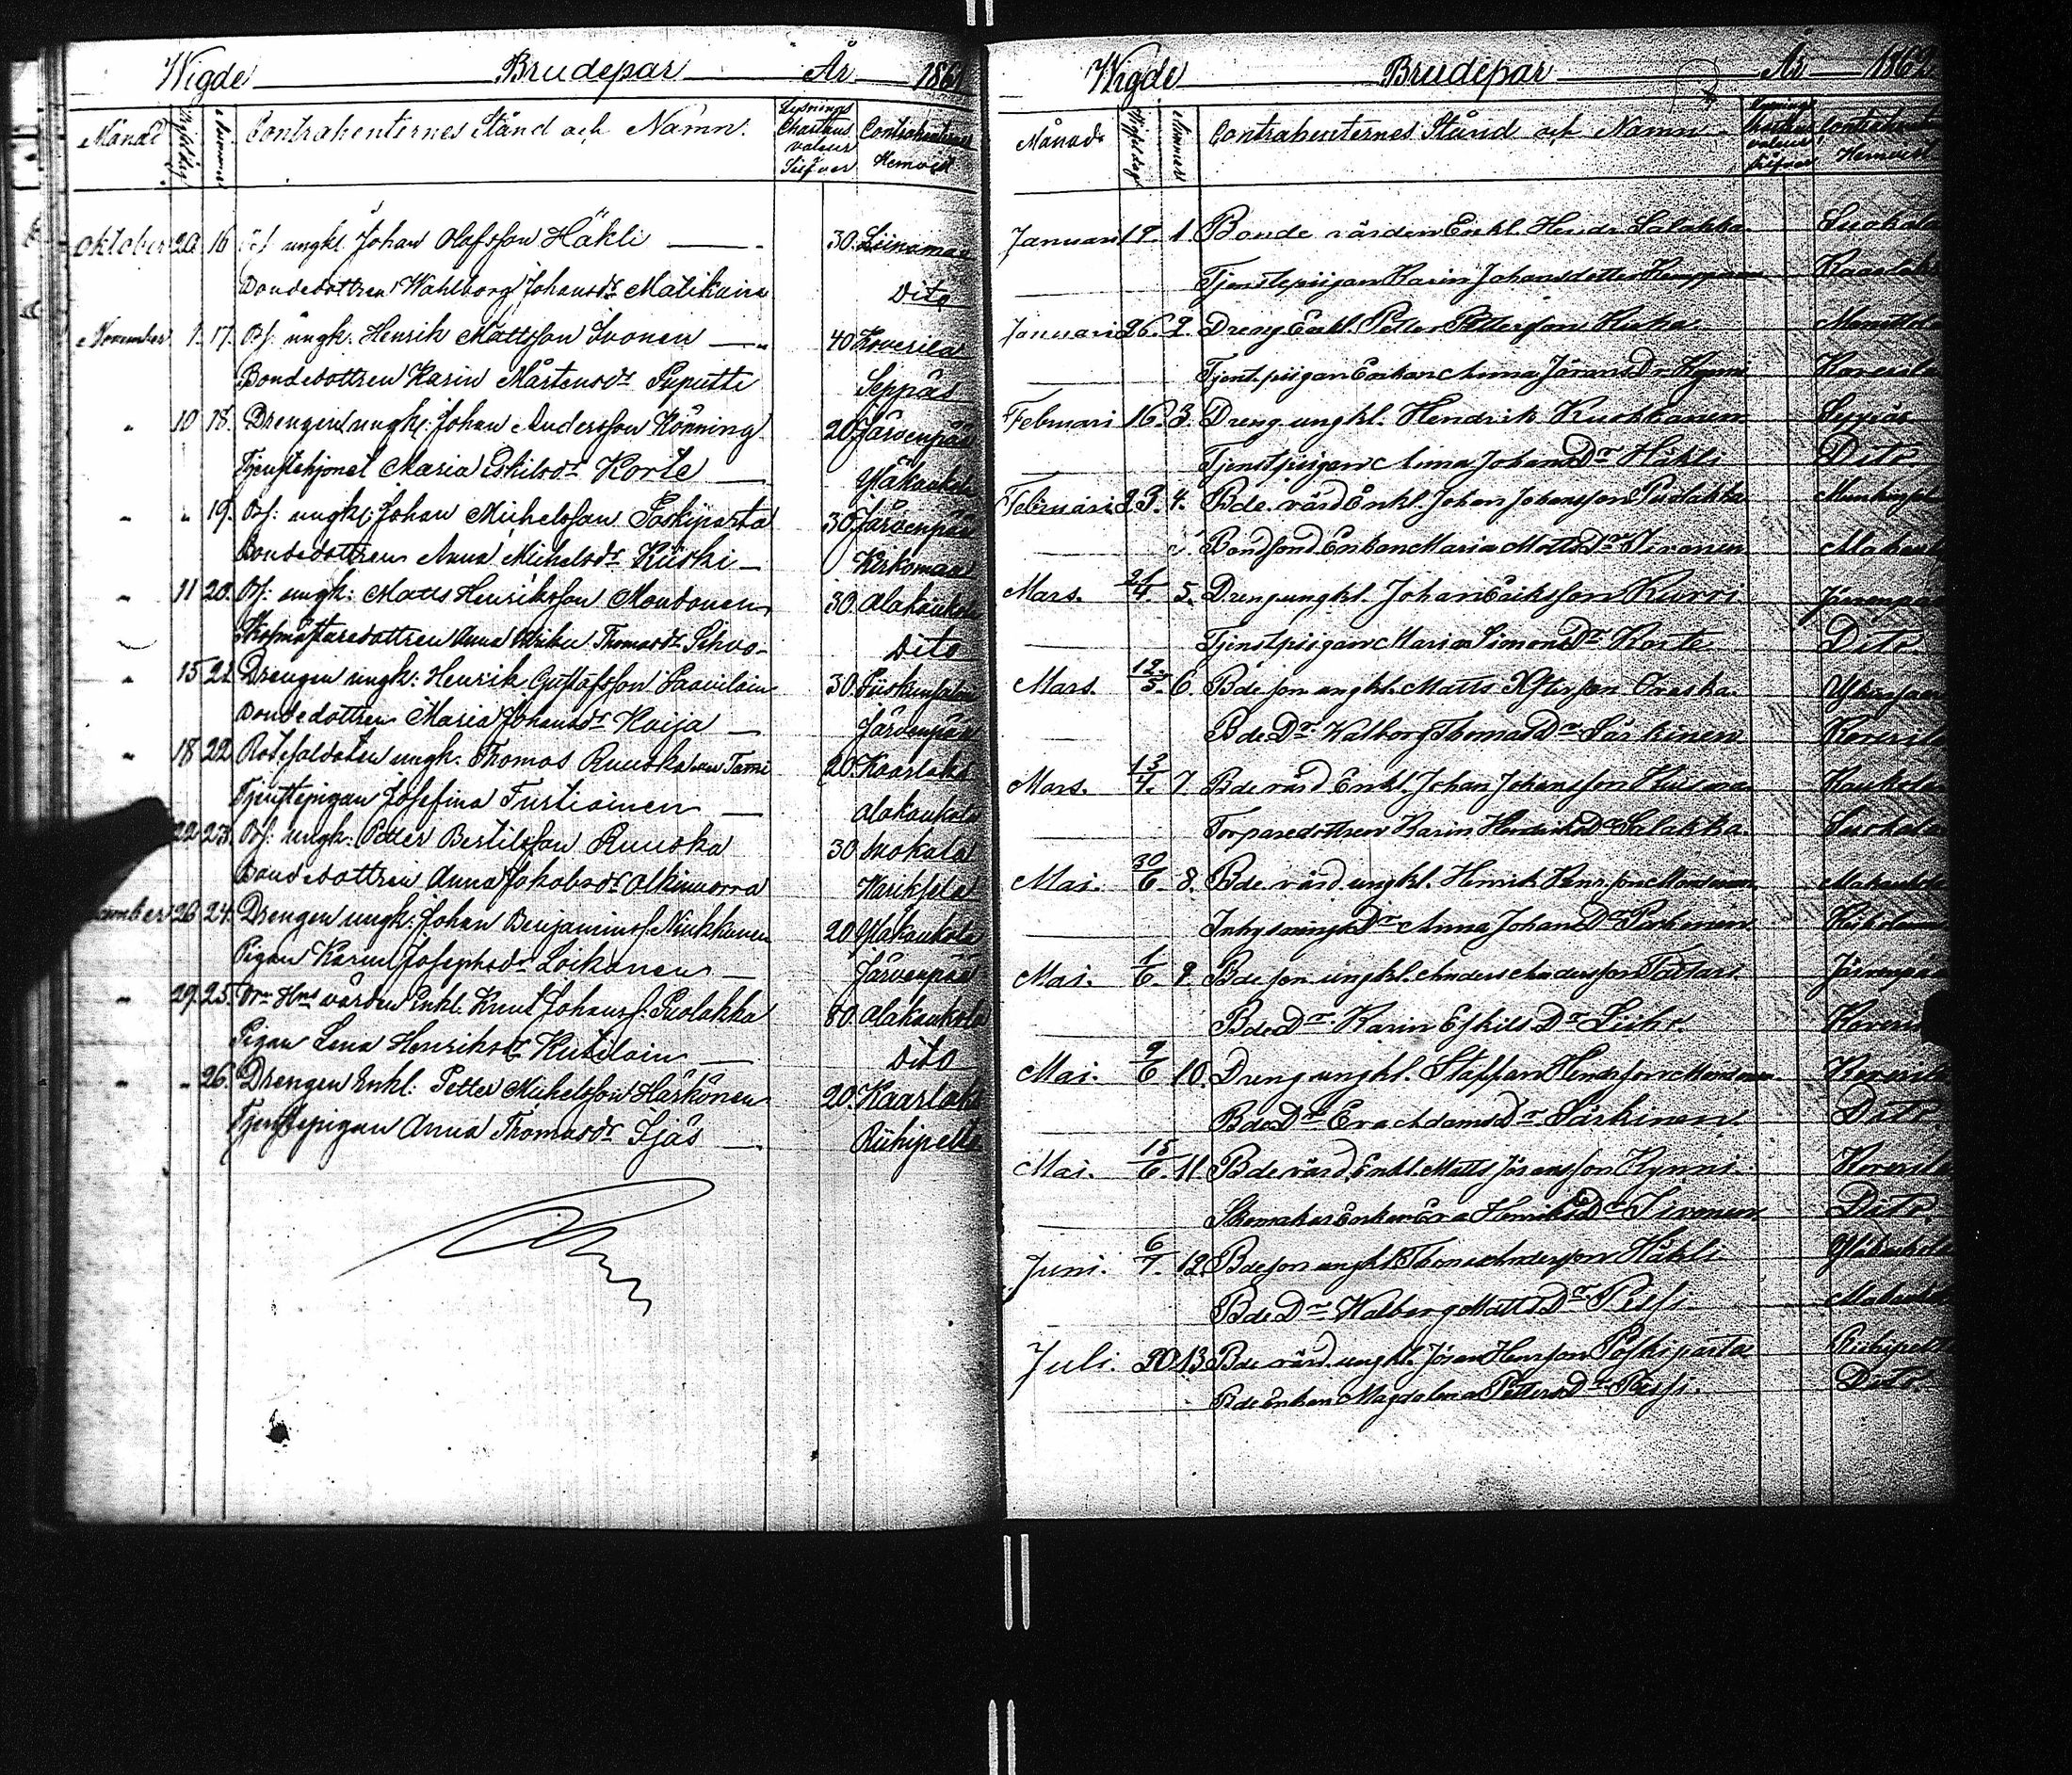 Wigde Brudepar År 1861
Månad Wigseldag Nummer Contrahenternes Stånd och Namn. Lysnings Charthæ valeur Silfver Contrahenternes Hemvist
Oktober 20 16 Bs. ungkl. Johan Olafsson Häkli 30. Liinamaa
Bondedottren Wahlborg Johansdr Matikain Dito
November 1. 17. Bs. ungk. Henrik Mattsson Ivonen 40 Koverila
Bondedottren Karin Mårtensdr Puputti Seppäs
" 10 18. Drengen ungk: Johan Andersson Könning 20 Järvenpää
Tjenstehjonet Maria Eskilsdr Korte Yläkaukola
" " 19. Bs: ungk: Johan Michelsson Poskiparta 30 Järvenpää
Bondedottren Anna Michelsdr Kiiski Kirkomaa
" 11 20. Bs: ungk: Matts Henriksson Mondonen 30. Alakaukola
Anna Thomasdr Dito
" 15 21 Drengen ungk: Henrik Gustafsson Paavilain 30.
Bondedottren Maria Johansdr Kaija Järvenpää
" 18 22 Rotesoldaten ungk. Thomas Ruuska 20. Kaarlaks
Tjenstepigan Josefina Turtiainen Alakaukola
22 23. Bs. ungk. Petter Bertilsson Ruuska 30 Suokala
Bondedottren Anna Jakobsdr Olkinuora
26 24. Drengen ungk. Johan Benjaminss. Niukkanen 20 Yläkaukola
Pigan Karin Josephsdr Loikanen Järvenpää
" 29. 25. värden Enkl. Knut Johanss. Puolakka 80. Alakaukola
Pigan Lena Henriksdr Kutilain Dito
" " 26. Drengen Enkl: Petter Michelsson Härkönen 20. Kaarlaks
Tjenstepigan Anna Thomasdr Sjös Riihipelto
Wigde Brudepar År 1862
Månad Wigseldag Nummer Contrahenternes Stånd och Namn Lysnings Charthæ valeur Silfver Hemvist
Januari 19. 1. Bonde värden Enkl. Hendr. Salakka Suokala
Tjenstepiigan Karin Johansdotter Kaarlaks
Januari 26. 2. Dreng Enkl. Petter Pettersson Kuka
Tjenstpiigan Enkan Anna Jöransdr Kynni Koverila
Februari 16. 3. Dreng ungkl. Hendrik Kuokkanen Seppäs
Tjenstpiigan Anna JohansDr Häkli Dito
Februari 23. 4. Bde. värd Enkl. Johan Johansson Puolakka
Enkan Maria MattsDr Sironen
Mars. 21/4. 5. Dreng ungkl. Johan Eriksson Kurri Järvenpää
Tjenstpiigan Maria SimonsDr Korte Dito
Mars. 12/5. 6. Bde son ungkl. Matts
Bde Dr. Walborg ThomasDr Särkinen Koverila
Mars. 13/4. 7 Bde värd Enkl. Johan Johansson Kaukola
Torparedottren Karin HendriksDr Salakka Suokala
Mai. 30/6 8. Bde värd ungkl. Henrik
Inhysnings Dr Anna JohansDr
Mai. 1/6. 9. Bde son ungkl. Anders Andersson Järvenpää
Bde Dr Karin Eskils Dr Koveri
Mai. 9/6 10. Dreng ungkl. Staffan Koverila
Bde Dr Eva AdamsDr Särkinen Dito
Mai. 15/6. 11. Bde värd Enkl. Matts Jöransson Kynni Koverila
Skomakar Enkan Eva HenriksDr Sironen Dito
Juni. 6/7. 12. Bde son ungkl. Thomas Andersson Häkli Yläkaukola
Bde Dr Walborg MattsDr Pessi
Juli. 20 13 Bde värd ungkl. Jöran Henrsson Poskiparta Riihipelto
Bde Enkan Magdalena PettersDr Pessi. Dito